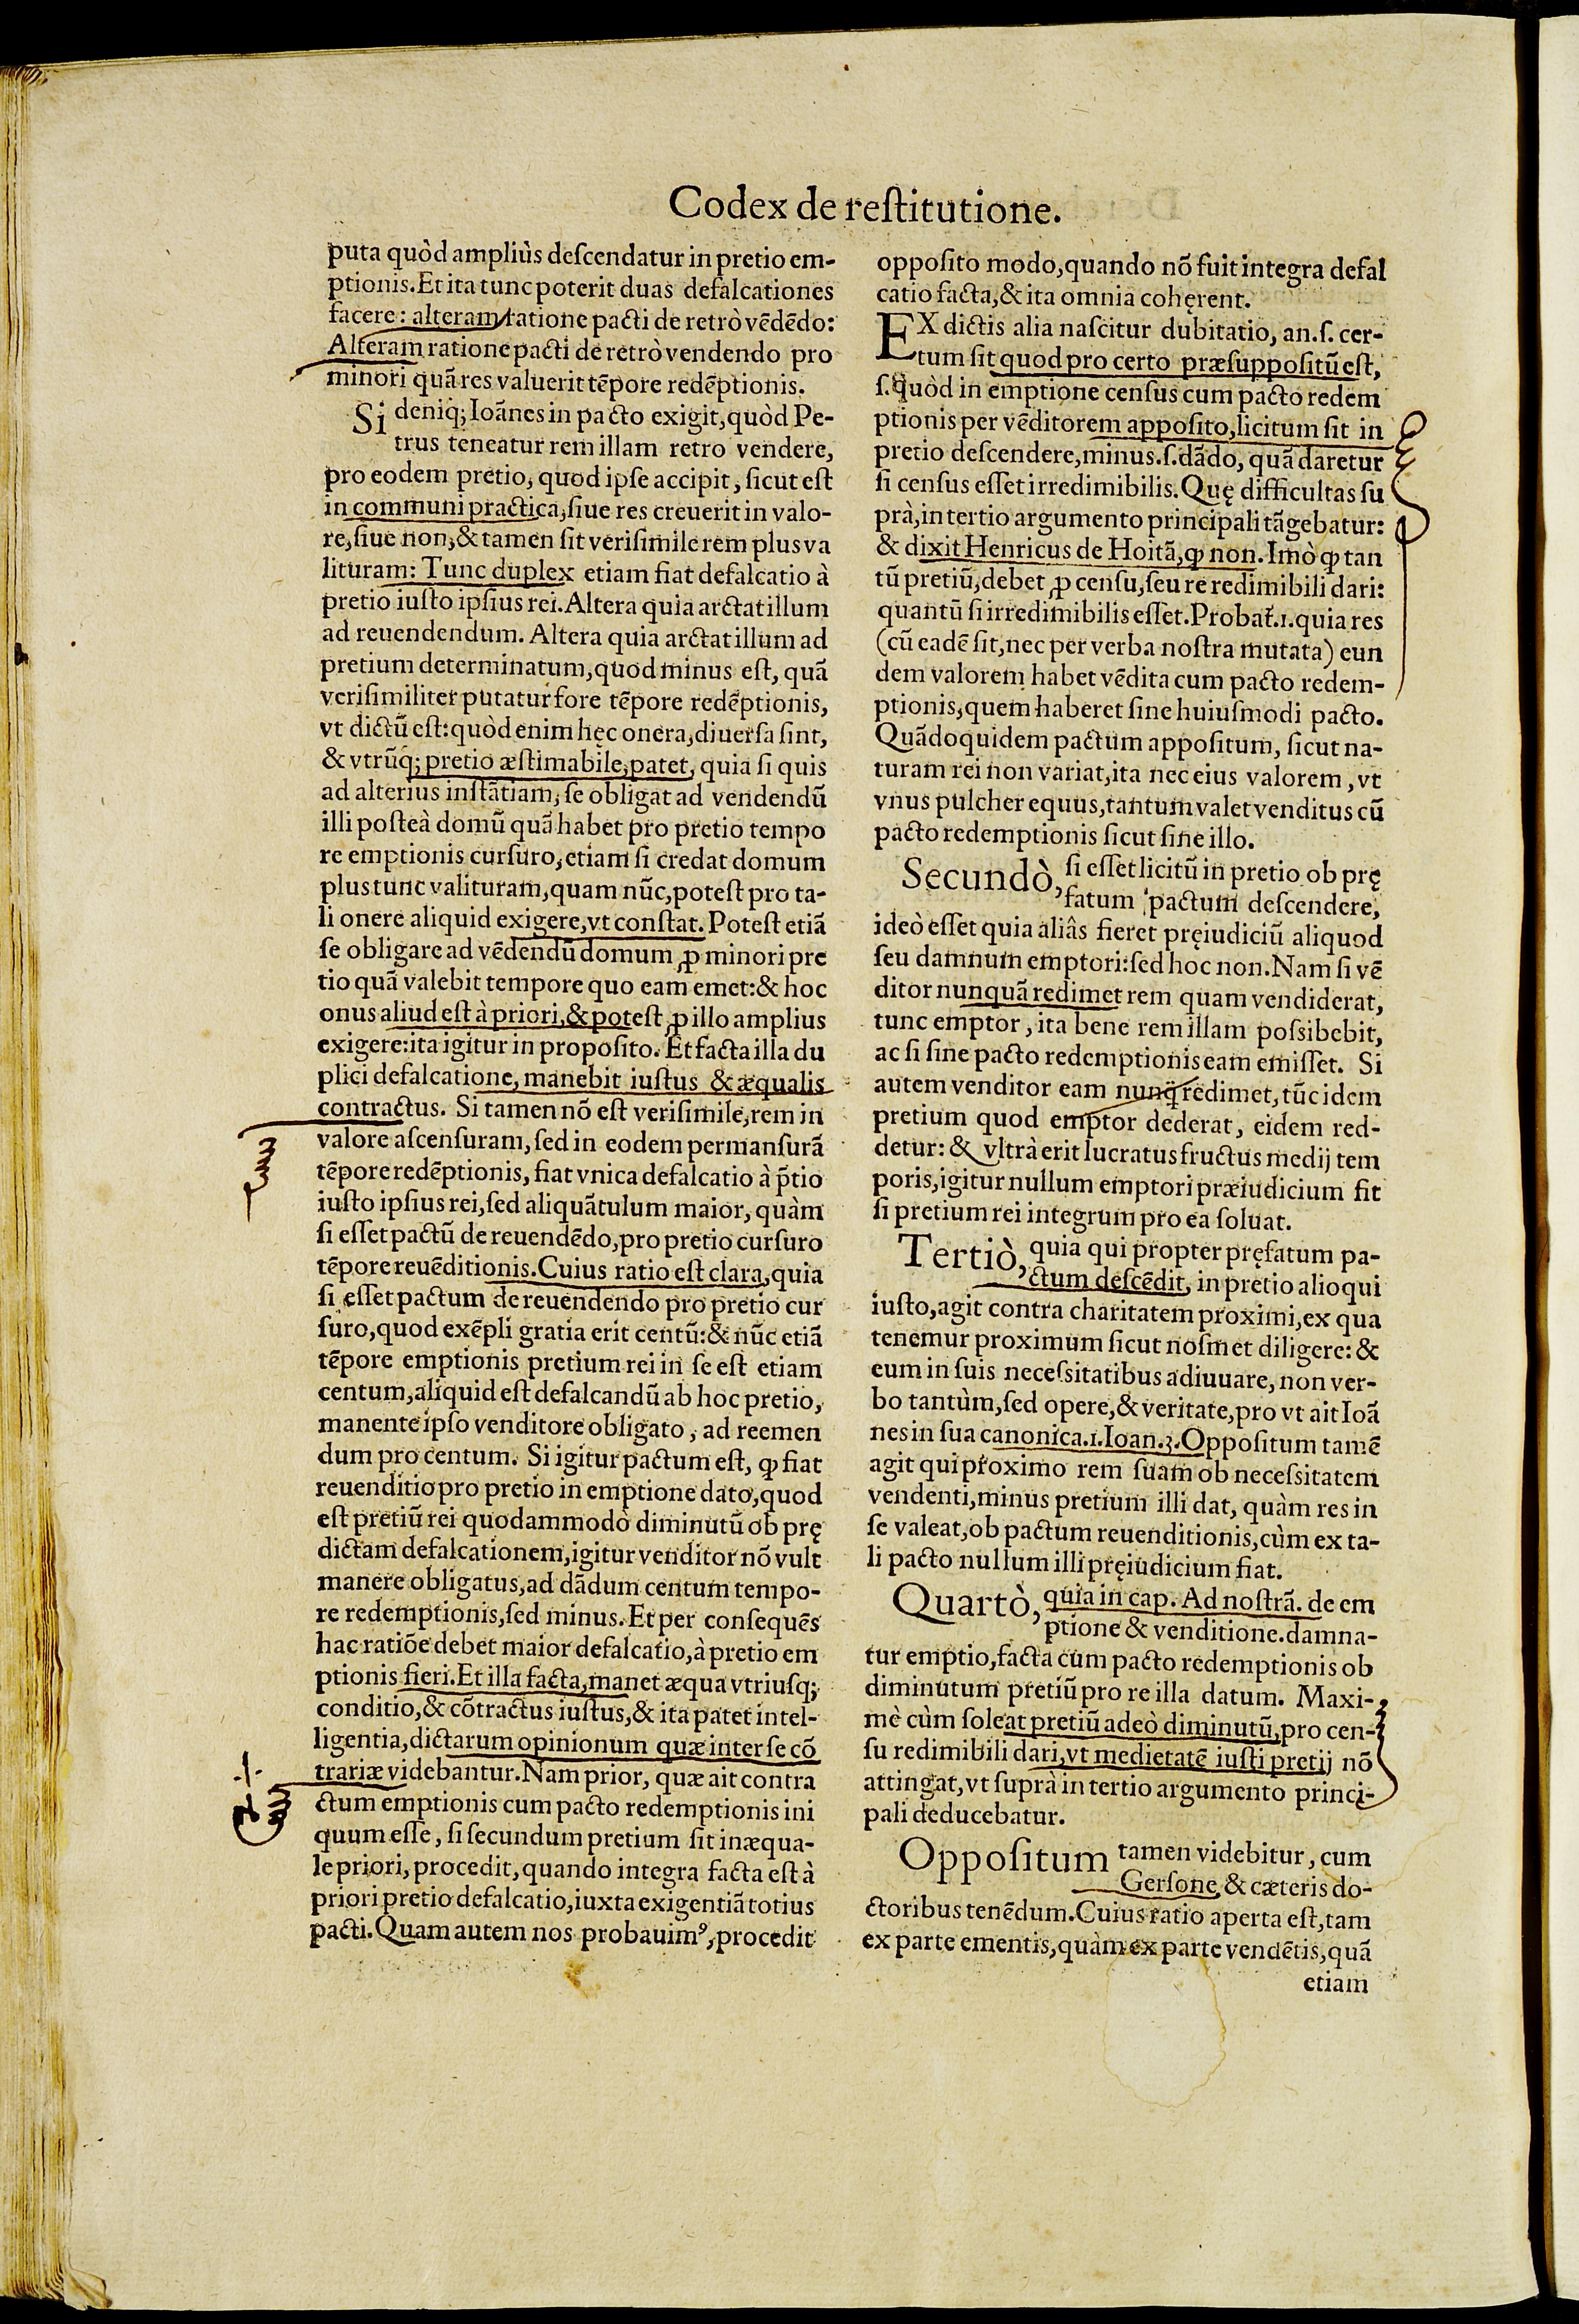 Codex de reſtitutione.
puta quòd ampliùs deſcendatur in pretio em-
ptionis. Et ita tunc poterit duas defalcationes
facere: alteram ratione pacti de retrò vēdēdo:
Alteram ratione pacti de retrò vendendo pro
minori quā res valuerit tēpore redēptionis.
Si deniq; Ioānes in pacto exigit, quòd Pe-
trus teneatur rem illam retro vendere,
pro eodem pretio, quod ipſe accipit, ſicut eſt
in communi practica, ſiue res creuerit in valo-
re, ſiue non, & tamen ſit veriſimile rem plus va
lituram: Tunc duplex etiam fiat defalcatio à
pretio iuſto ipſius rei. Altera quia arctat illum
ad reuendendum. Altera quia arctat illum ad
pretium determinatum, quod minus eſt, quā
veriſimiliter putatur fore tēpore redēptionis,
vt dictū eſt: quòd enim hęc onera, diuerſa ſint,
& vtrūq; pretio æſtimabile, patet, quia ſi quis
ad alterius inſtātiam, ſe obligat ad vendendū
illi poſteà domū quā habet pro pretio tempo
re emptionis curſuro, etiam ſi credat domum
plus tunc valituram, quam nūc, poteſt pro ta-
li onere aliquid exigere, vt conſtat. Poteſt etiā
ſe obligare ad vēdendū domum ꝓ minori pre
tio quā valebit tempore quo eam emet: & hoc
onus aliud eſt à priori, & poteſt ꝓ illo amplius
exigere: ita igitur in propoſito. Et facta illa du
plici defalcatione, manebit iuſtus & æqualis
contractus. Si tamen nō eſt veriſimile, rem in
valore aſcenſuram, ſed in eodem permanſurā
tēpore redēptionis, fiat vnica defalcatio à p̄tio
iuſto ipſius rei, ſed aliquātulum maior, quàm
ſi eſſet pactū de reuendēdo, pro pretio curſuro
tēpore reuēditionis. Cuius ratio eſt clara, quia
ſi eſſet pactum de reuendendo pro pretio cur
ſuro, quod exēpli gratia erit centū: & nūc etiā
tēpore emptionis pretium rei in ſe eſt etiam
centum, aliquid eſt defalcandū ab hoc pretio,
manente ipſo venditore obligato, ad reemen
dum pro centum. Si igitur pactum eſt, ꝙ fiat
reuenditio pro pretio in emptione dato, quod
eſt pretiū rei quodammodò diminutū ob prę
dictam defalcationem, igitur venditor nō vult
manere obligatus, ad dādum centum tempo-
re redemptionis, ſed minus. Et per conſequēs
hac ratiōe debet maior defalcatio, à pretio em
ptionis fieri. Et illa facta, manet æqua vtriuſq;
conditio, & cōtractus iuſtus, & ita patet intel-
ligentia, dictarum opinionum quæ inter ſe cō
trariæ videbantur. Nam prior, quæ ait contra
ctum emptionis cum pacto redemptionis ini
quum eſſe, ſi ſecundum pretium ſit inæqua-
le priori, procedit, quando integra facta eſt à
priori pretio defalcatio, iuxta exigentiā totius
pacti. Quam autem nos probauimꝰ, procedit
oppoſito modo, quando nō fuit integra defal
catio facta, & ita omnia cohęrent.
EX dictis alia naſcitur dubitatio, an. ſ. cer-
tum ſit quod pro certo præſuppoſitū eſt,
ſ. quòd in emptione cenſus cum pacto redem
ptionis per vēditorem appoſito, licitum ſit in
pretio deſcendere, minus. ſ. dādo, quā daretur
ſi cenſus eſſet irredimibilis. Quę difficultas ſu
prà, in tertio argumento principali tāgebatur:
& dixit Henricus de Hoitā, ꝙ non. Imò ꝙ tan
tū pretiū, debet ꝓ cenſu, ſeu re redimibili dari:
quantū ſi irredimibilis eſſet. Probat̄. 1. quia res
(cū eadē ſit, nec per verba noſtra mutata) eun
dem valorem habet vēdita cum pacto redem-
ptionis, quem haberet ſine huiuſmodi pacto.
Quādoquidem pactum appoſitum, ſicut na-
turam rei non variat, ita nec eius valorem, vt
vnus pulcher equus, tantum valet venditus cū
pacto redemptionis ſicut ſine illo.
Secundò, ſi eſſet licitū in pretio ob prę
fatum pactum deſcendere,
ideò eſſet quia aliâs fieret pręiudiciū aliquod
ſeu damnum emptori: ſed hoc non. Nam ſi vē
ditor nunquā redimet rem quam vendiderat,
tunc emptor, ita bene rem illam poſsibebit,
ac ſi ſine pacto redemptionis eam emiſſet. Si
autem venditor eam nunq̄ redimet, tūc idem
pretium quod emptor dederat, eidem red-
detur: & vltrà erit lucratus fructus medij tem
poris, igitur nullum emptori præiudicium fit
ſi pretium rei integrum pro ea ſoluat.
Tertiò, quia qui propter pręfatum pa-
ctum deſcēdit, in pretio alioqui
iuſto, agit contra charitatem proximi, ex qua
tenemur proximum ſicut noſmet diligere: &
eum in ſuis neceſsitatibus adiuuare, non ver-
bo tantùm, ſed opere, & veritate, pro vt ait Ioā
nes in ſua canonica. 1. Ioan. 3. Oppoſitum tamē
agit qui proximo rem ſuam ob neceſsitatem
vendenti, minus pretium illi dat, quàm res in
ſe valeat, ob pactum reuenditionis, cùm ex ta-
li pacto nullum illi pręiudicium fiat.
Quartò, quia in cap. Ad noſtrā. de em
ptione & venditione. damna-
tur emptio, facta cum pacto redemptionis ob
diminutum pretiū pro re illa datum. Maxi-
mè cùm ſoleat pretiū adeò diminutū, pro cen-
ſu redimibili dari, vt medietatē iuſti pretij nō
attingat, vt ſuprà in tertio argumento princi-
pali deducebatur.
Oppoſitum tamen videbitur, cum
Gerſone, & cæteris do-
ctoribus tenēdum. Cuius ratio aperta eſt, tam
ex parte ementis, quàm ex parte vendētis, quā
etiam